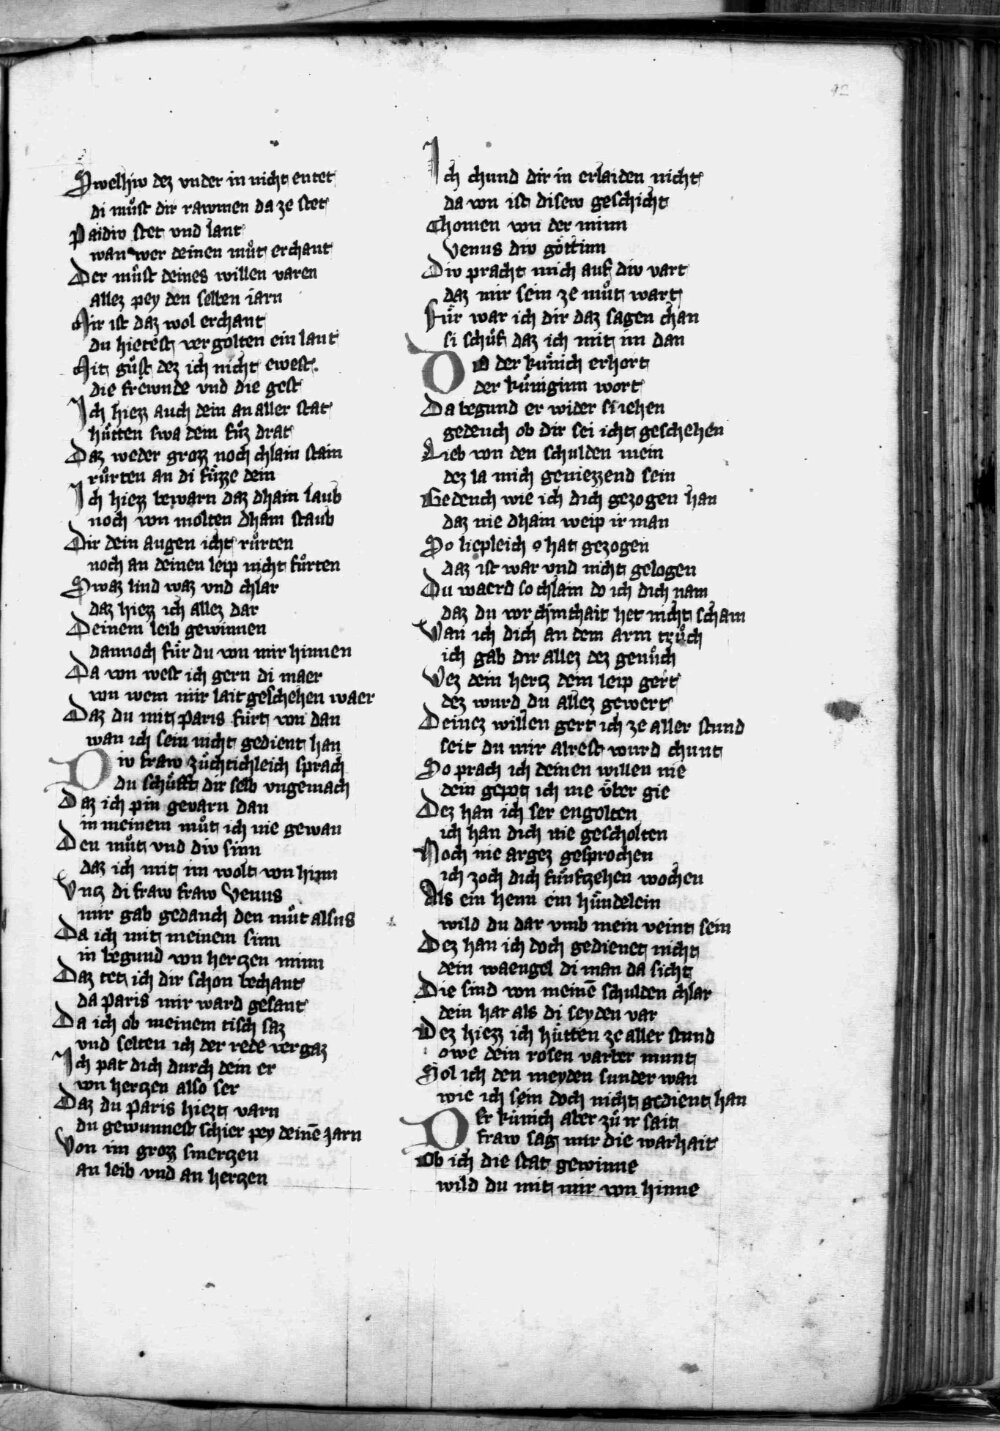 Swelhiv dez vnder in nicht entet
di muͤst dir rawmen da ze stet
Paidiv stet vnd lant
wan wer deinen muͦt erchant
Der muͤst deines willen varen
allez pey den selben iarn
Mir ist daz wol erchant
du hietest vergolten ein lant
Mit guͤst dez ich nicht ewest
die frewnde vnd die gest
Ich hiezz auch dein an aller stat
huͤtten swa dein fuͦz drat
Daz weder grozz noch chlain stain
ruͦrten an di fuͤzze dein
Ich hiezz bewarn daz dhain laub
noch von molten dhain staub
Dir dein augen icht ruͦrten
noch an deinen leip nicht fuͦrten
Swaz lind waz vnd chlar
daz hiezz ich allez dar
Deinem leib gewinnen
dannoch fuͦr du von mir hinnen
Da von west ich gern di maer
von wem mir lait geschehen waer
Daz du mit Paris fuͦrt von dan
wan ich sein nicht gedient han
Div fraw zuͤchtichleich sprach
du schuͦfft dir selb vngemach
Daz ich pin gevarn dan
in meinem muͦt ich nie gewan
Den muͦt vnd div sinn
daz ich mit im wolt von hinn
Vntz di fraw fraw Venus
mir gab gedanch den muͦt alsus
Da ich mit meinem sinn
in begund von hertzen minn
Daz tet ich dir schon bechant
da Paris mir ward gesant
Da ich ob meinem tisch saz
vnd selten ich der rede vergaz
Ich pat dich durch dein er
von hertzen also ser
Daz du Paris hiezt varn
du gewunnest schier pey deinē zarn
Von im grozz smertzen
an leib vnd an hertzen
Ich chund dir in erlaiden nicht
da von ist disew geschicht
Chomen von der minn
Venus div goͤttinn
Div pracht mich auf div vart
daz mir sein ze muͦt wart
Fuͤr war ich dir daz sagen chan
si schuͦf daz ich mit im dan
Do der kuͤnich erhort
der kuͤniginn wort
Da begund er wider si iehen
gedench ob dir sei icht geschehen
Lieb von den schulden mein
dez la mich geniezzend sein
Gedench wie ich dich gezogen han
daz nie dhain weip ir man
So liepleich hat gezogen
daz ist war vnd nicht gelogen
Du waerd so chlain do ich dich nam
daz du vor chinthait het nicht scham
Wan ich dich an dem arm truͦch
ich gab dir allez dez genuͦch
Wez dein hertz dein leip gert
dez wurd du allez gewert
Deinez willen gert ich ze aller stund
seit du mir alrest wurd chunt
So prach ich deinen willen nie
dein gepot ich nie vͤber gie
Dez han ich ser engolten
ich han dich nie gescholten
Noch nie argez gesprochen
ich zoch dich fuͤnftzehen wochen
Als ein henn ein huͤndelein
wild du dar vmb mein veint sein
Dez han ich doch gedienet nicht
dein waengel di man da sicht
Die sind von meinē schulden chlar
dein har als di seyden var
Dez hiezz ich huͤtten ze aller stund
owe dein rosen varber munt
Sol ich den meyden sunder wan
wie ich sein doch nicht gedient han
Der kuͤnich aber zuͦ ir sait
fraw sag mir die warhait
Ob ich die stat gewinne
wild du mit mir von hinne